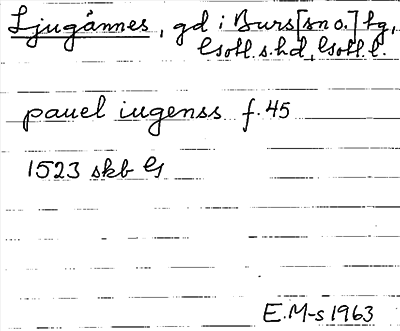 Ljugännes, gd i Burs [sn o.] tg,
Gotl. s. hd, Gotl. l.
pauel iugenss f. 45
1523 skb G
E. M-s 1963